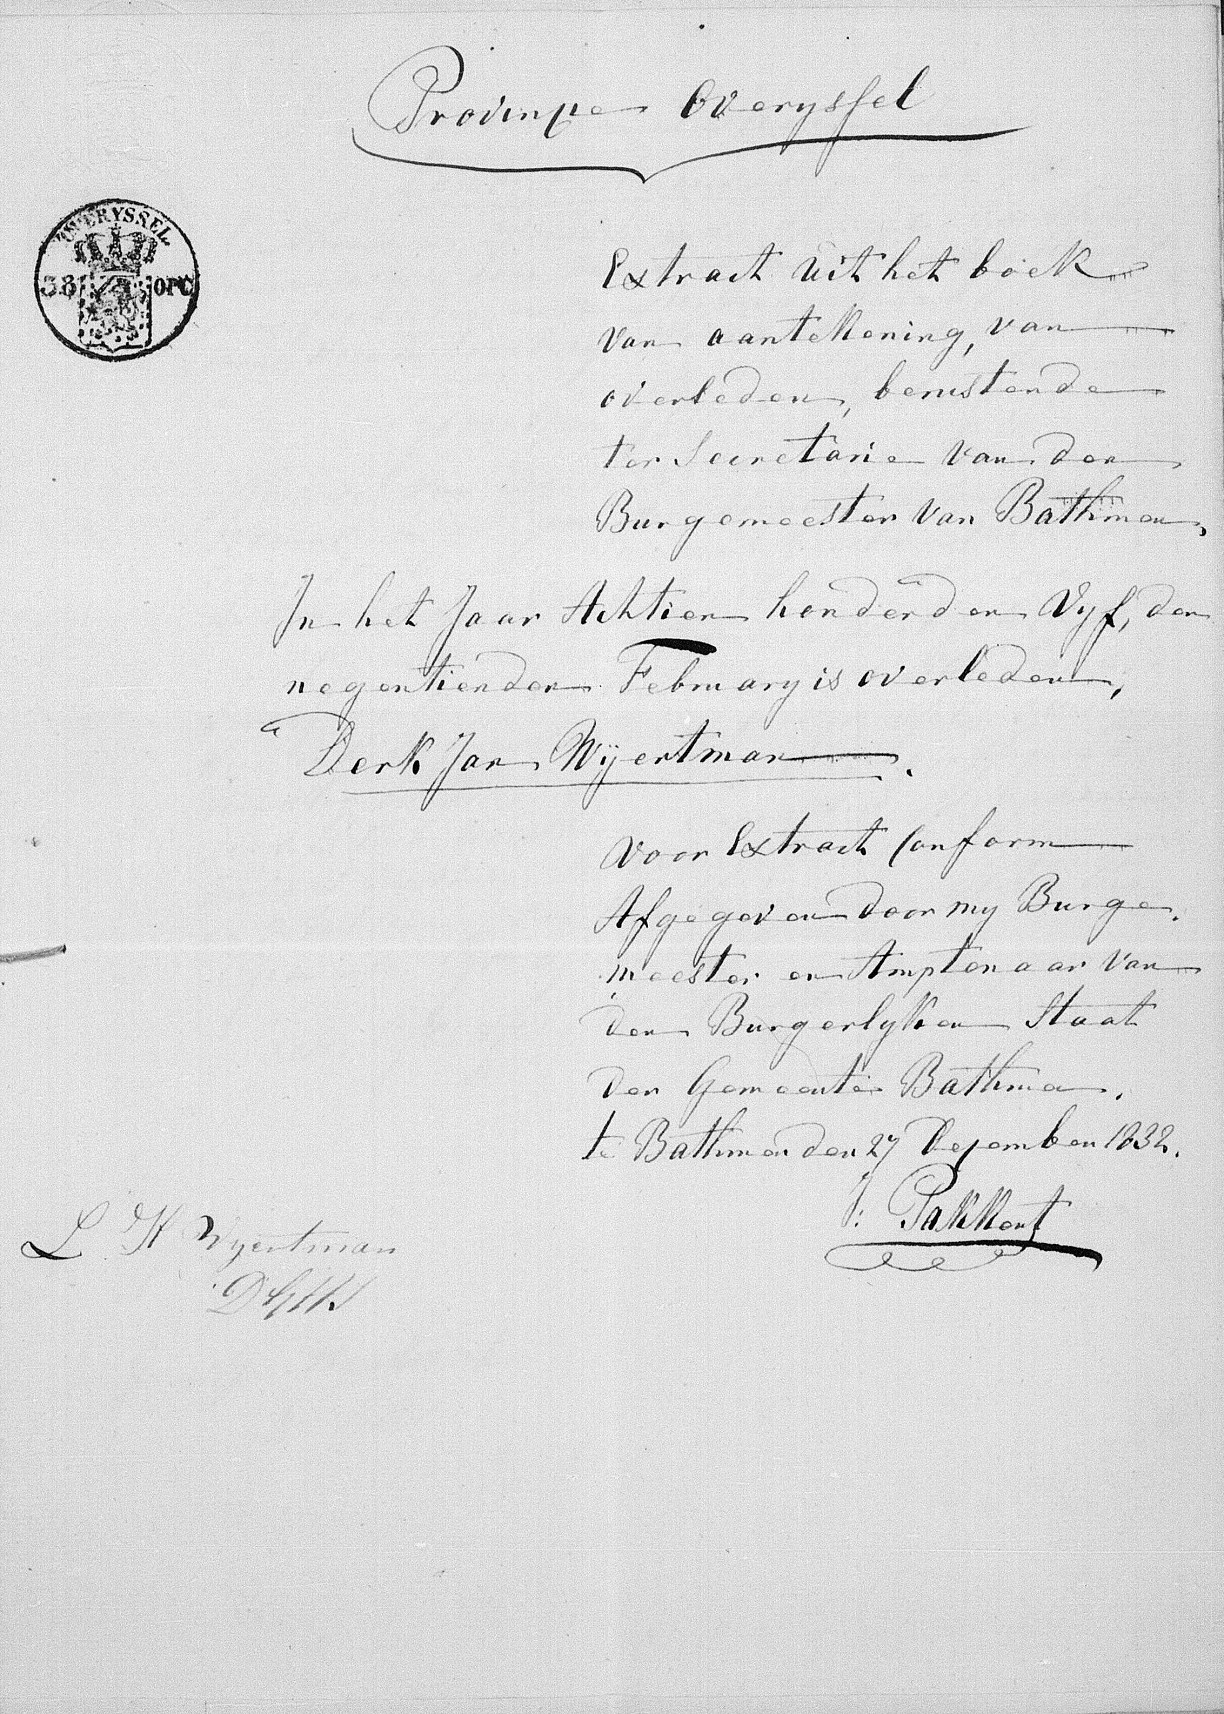 Provinçie Overyssel
OVERYSSEL
38 OPC
Extract uit het boek
van aantekening, van
overleden, berustende
ter Secretarie van den
Burgemeester van Bathmen,
In het Jaar Achtien honderd en Vyf, den
negentienden February is overleden,
Derk Jan Wÿertman.
Voor Extract Conform
Afgegeven door my Burge.
meester en Amptenaar van
den Burgerlyken Staat
der Gemeente Bathmen.
te Bathmen den 27 Deçember 1832.
J: Pakkert
L H Wyertman